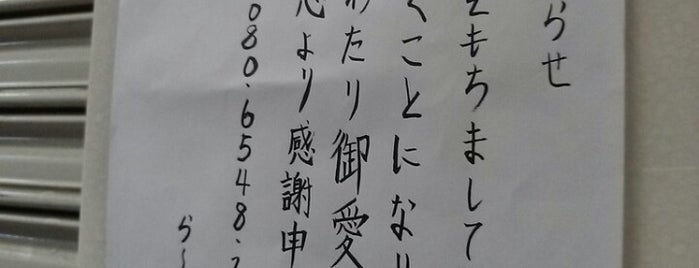 らせ
をもちまして
くことになり
わたり御愛
心より感謝申
080.6548.7
らー